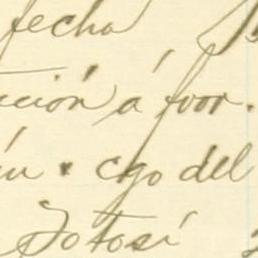 fecha
ición á fvor.
cgo del
Potosí